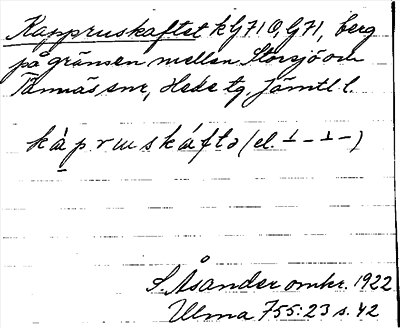 Kappruskaftet kG71Ö, G71, berg
på gränsen mellan Storsjö och
Tännäs snr, Hede tg, Jämtl l.
káprɯskáftə (el. ⊥–⊥–)
S. Åsander omkr. 1922
Ulma 755:23 s. 42